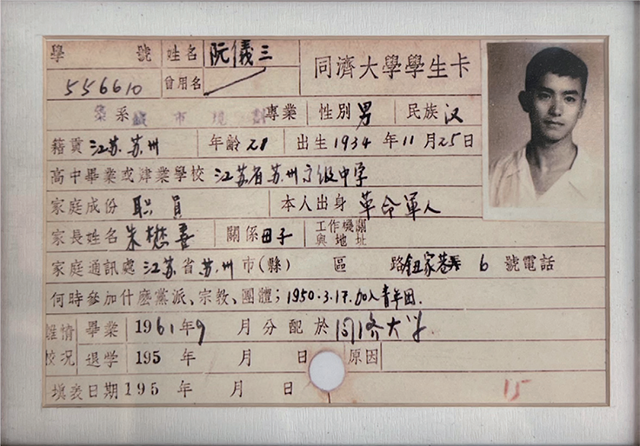 同濟大學學生卡
學號 姓名 阮儀三
556610 曾用名
系 城市規劃 專業 性別 男 民族 汉
籍貫 江苏 苏州 年齡 21 出生 1934 年 11 月 25 日
高中畢業或肄業學校 江苏省苏州高级中学
家庭成份 职員 本人出身 革命軍人
家長姓名 朱懋 關係 母子 工作機關與地址
家庭通訊處 江苏省 苏州 市(縣) 區 路 鈕家巷 6 號電話
何時參加什麼黨派、宗教、團體; 1950.3.17.加入青年团.
離校情况 畢業 1961年9 月分配於 同济大学
退学 195 年 月 日 原因
填表日期 195 年 月 日
15